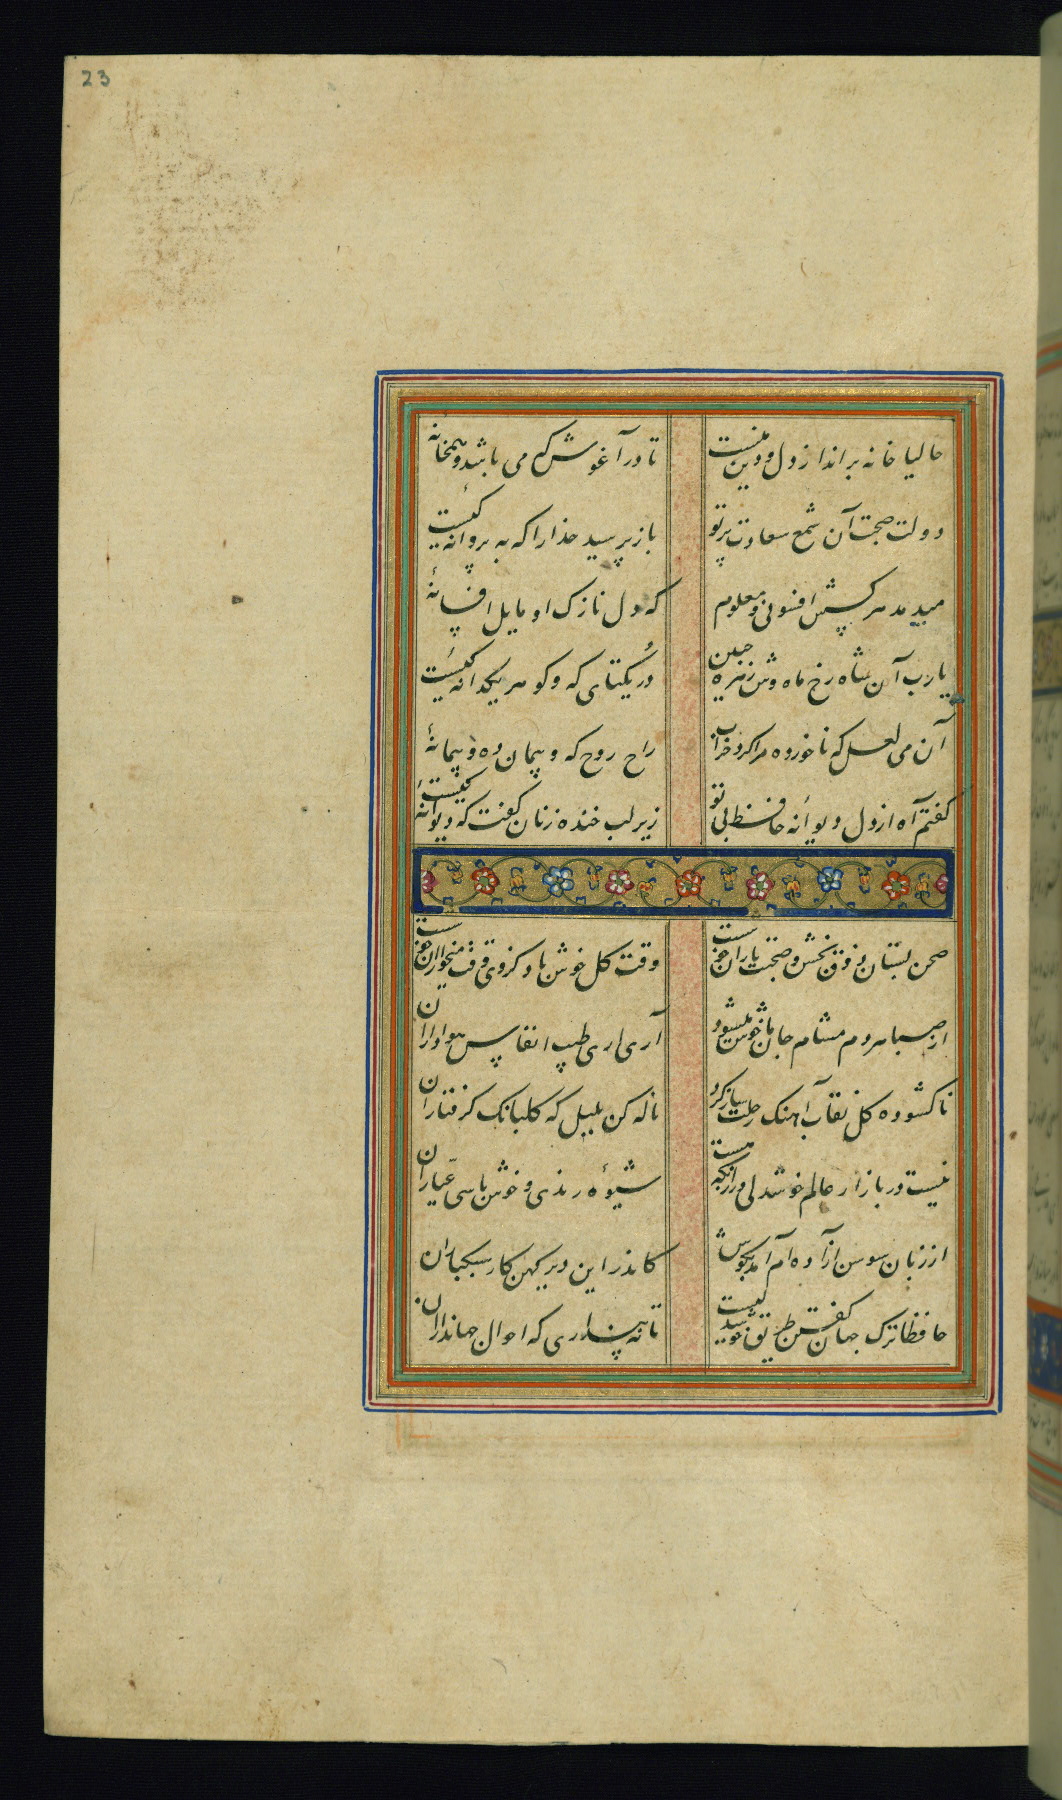 23
حالیا خانه برانداز دل و دین منست
تا در آغوش که می باشد و همخانه
دولت صحبت آن شمع سعادت پرتو
باز پرسید خدا را که به پروانه کیست
میدمد هر کسش افسونی و معلوم
که دل نازک او مایل افسانهٔ
یارب آن شاه رخ ماه وش زهره جبین
در یکتای که و گوهر یکدانه کیست
آن می لعل که ناخورده مرا کرد خراب
راح روح که و پیمان ده و پیمانهٔ
گفتم آه از دل دیوانه حافظ بی تو
زیر لب خنده زنان گفت که دیوانهٔ کیست
صحن بستان ذوق بخش و صحبت یاران خوست
وقت گل خوش باد کزوی وقت میخواران خوست
از صبا هر دم مشام جان ما خوش میشود
آری اری طیب انفاس هواداران
ناکشوده گل نقاب آهنک رحلت ساز کرد
ناله کن بلبل که گلبانک گرفتاران
نیست در بازار عالم خوشدلی ور زانکه هست
شیوهٔ رندی و خوش باشی عیاران
از زبان سوسن آزاده ام آمد بگوش
کاندر این دیر کهن کار سبکباران
حافظا ترک جهان گفتن طریق خوشدلیست
تا نه پنداری که احوال جهانداران